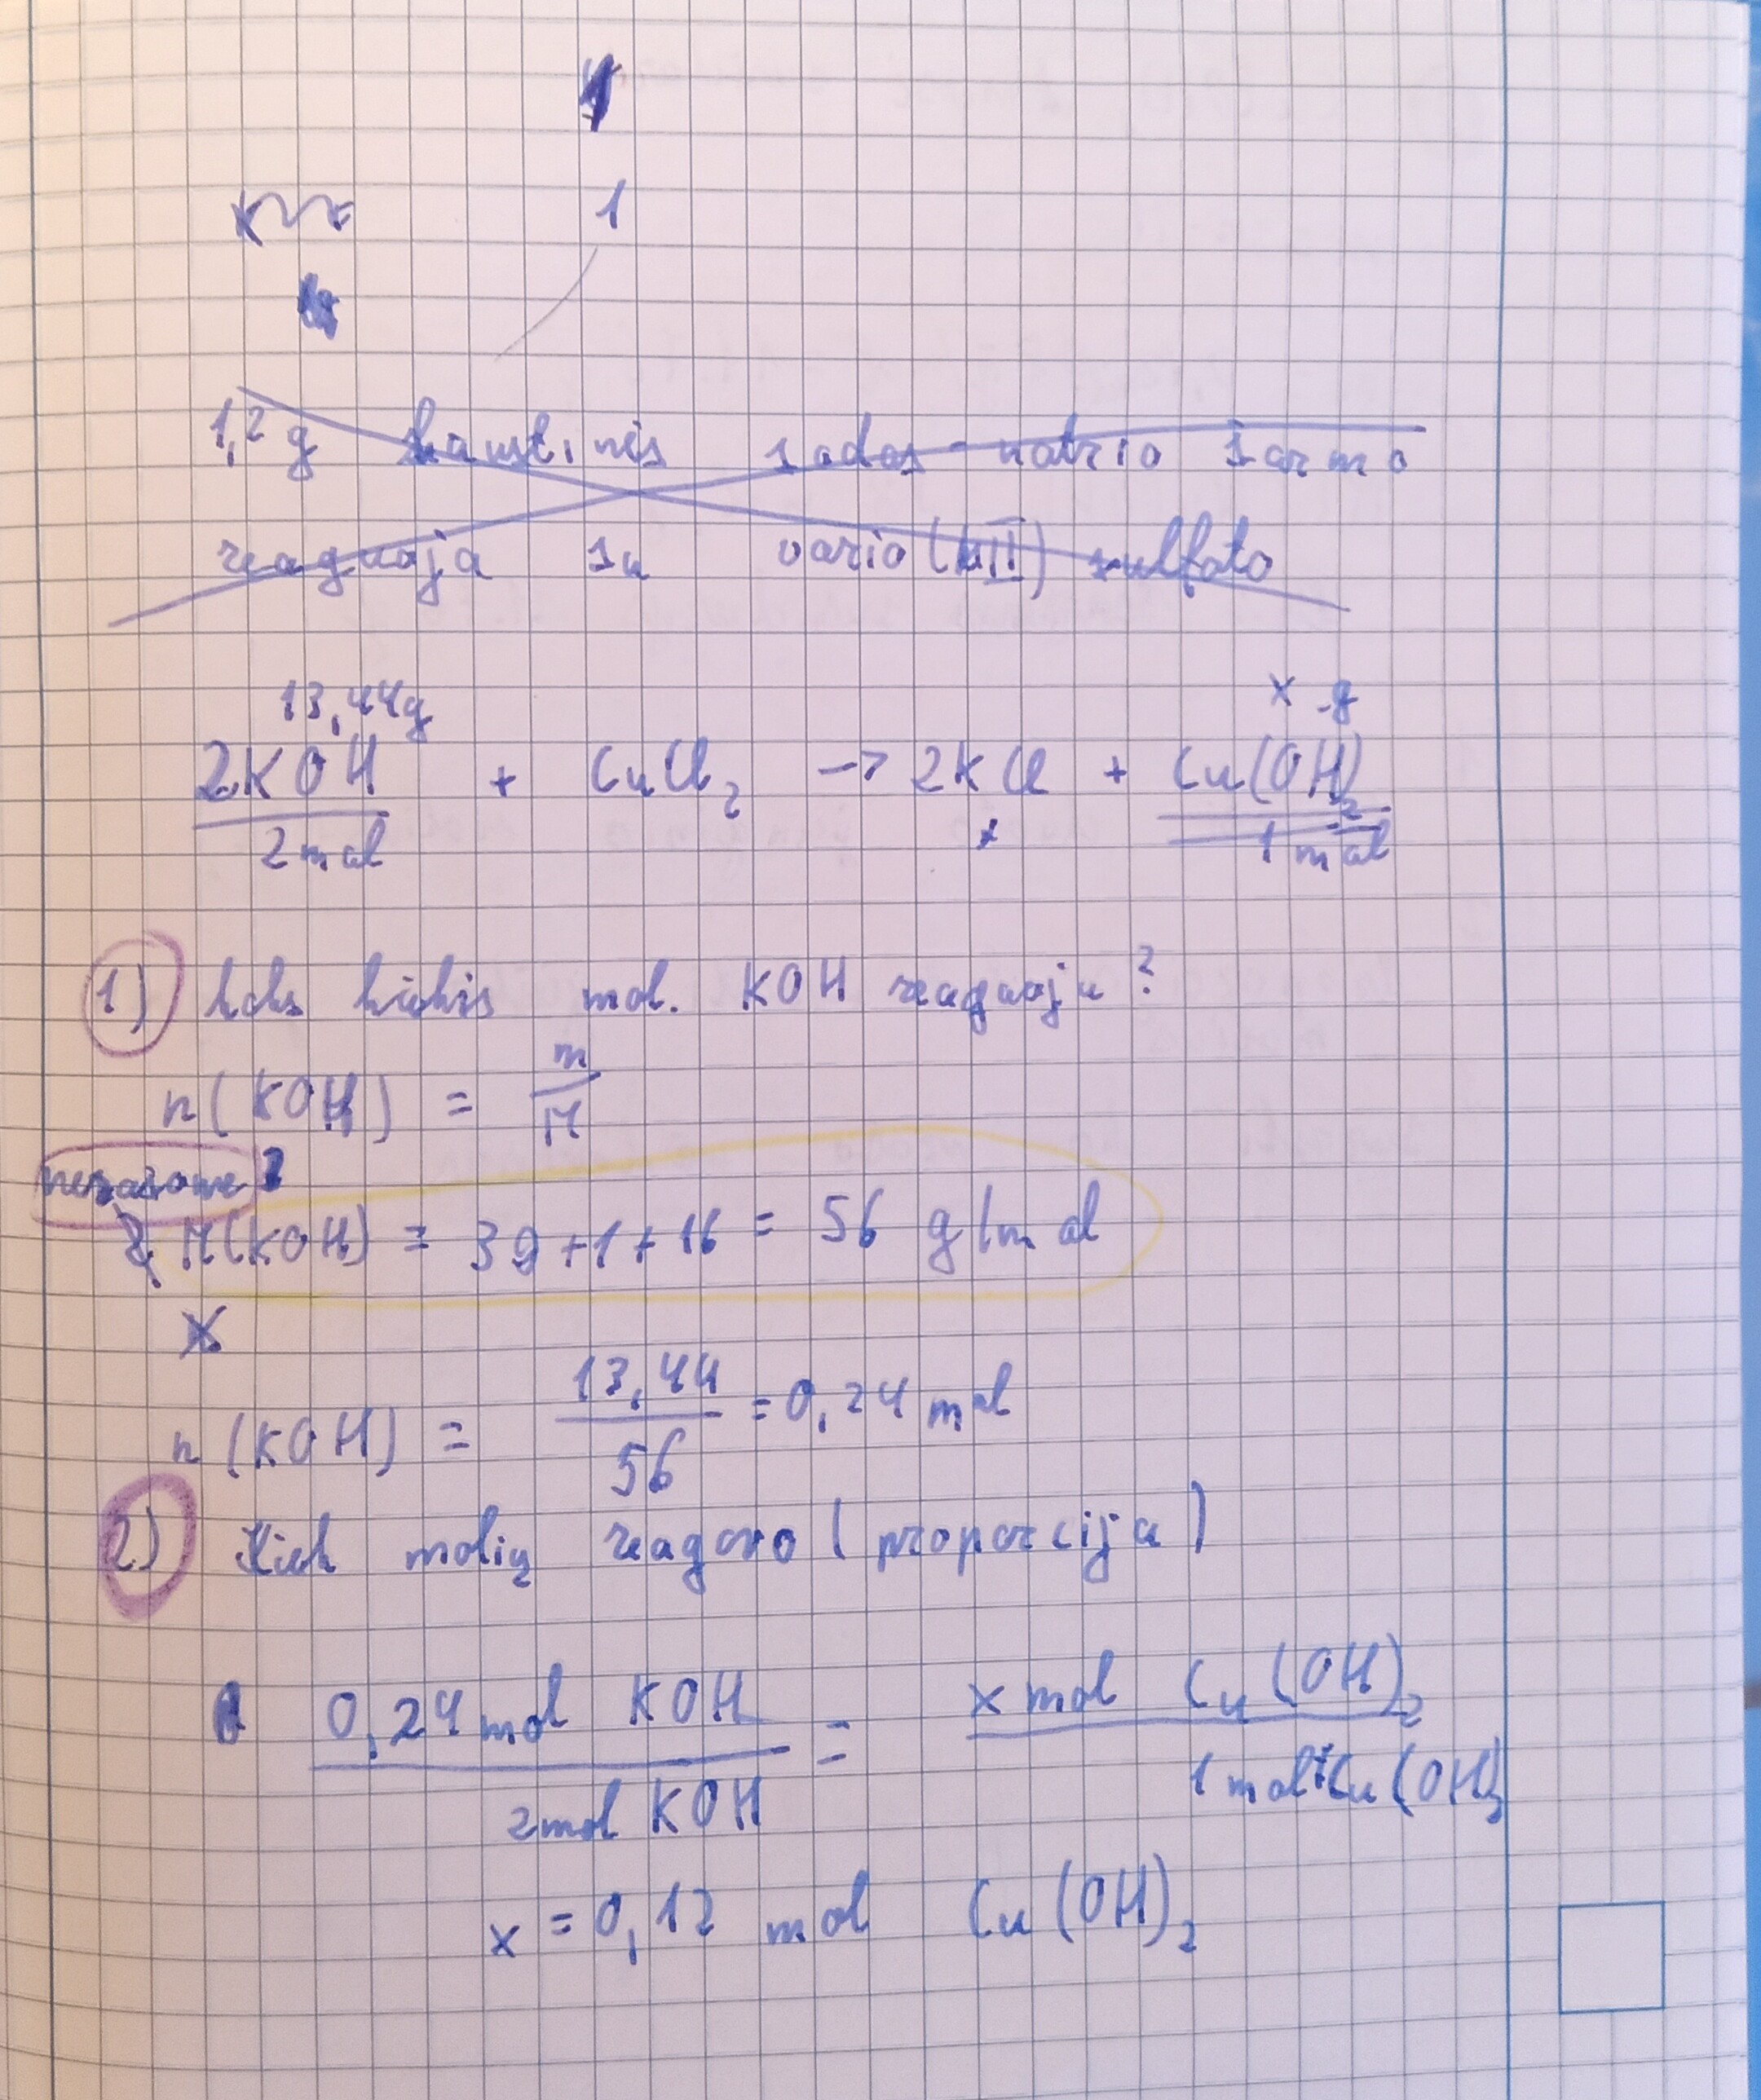 1
1,2 g kaustinės sodos - natrio šarmo
reaguoja su vario (II) sulfato
13,44g x g
2KOH + CuCl₂ -> 2KCl + Cu(OH)₂
2 mol x 1 mol
1) koks kiekis mol. KOH reaguoja?
n(KOH) = m/M
M(KOH) = 39+1+16 = 56 g/mol
n(KOH) = 13,44/56 = 0,24 mol
2) Kiek molių reagavo (proporcija)
0,24 mol KOH / 2 mol KOH = x mol Cu(OH)₂ / 1 mol Cu(OH)₂
x = 0,12 mol Cu(OH)₂